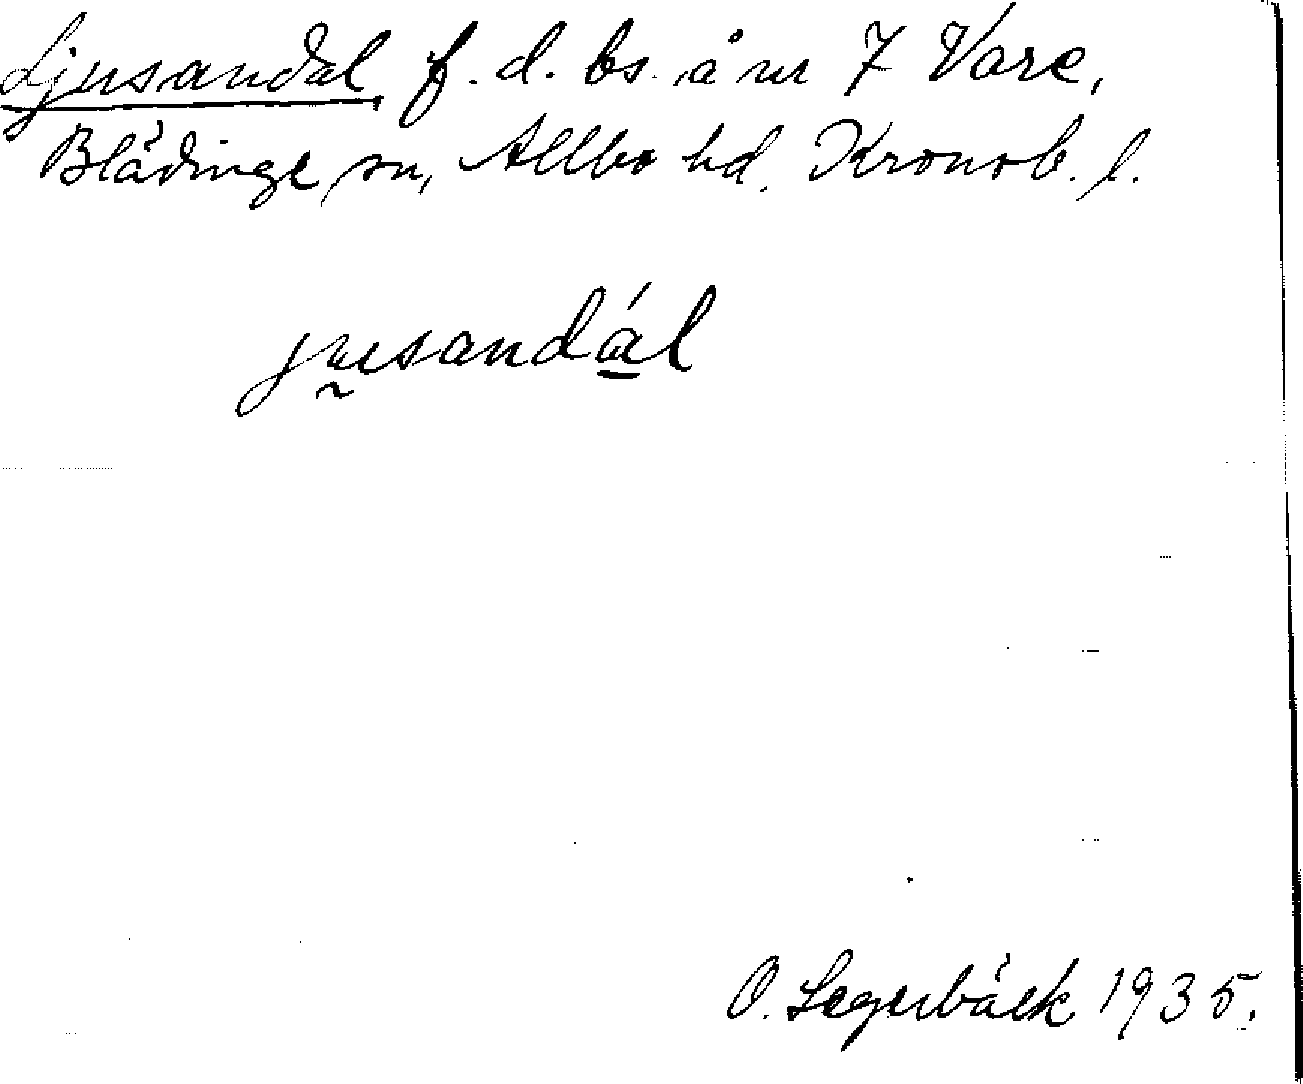 Ljusandal f. d. bs. å nr 7 Vare,
Blädinge sn, Allbo hd. Kronob. l.
jusandál
O. Segerbäck 1935.